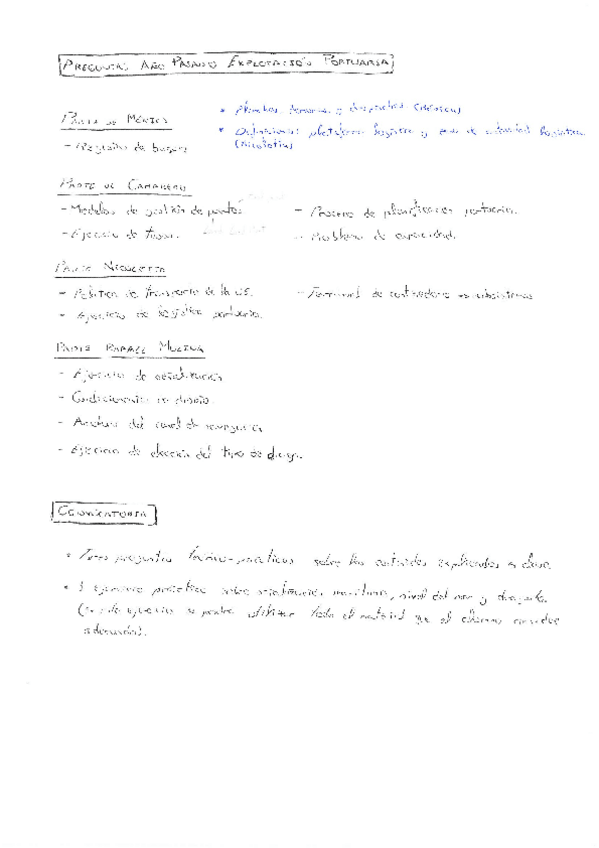 PREGUNTAS AÑO PASADO EXPLOTACIÓN PORTUARIA
PARTE DE
- Registro de buques
*
* Definiciones plataforma logística y zona de actividad logística
(Nicoletta)
PARTE DE CAMARERO
- Modelos de gestión de puertos
- Ejercicio de tasas.
- Proceso de planificación portuaria.
- Problema de capacidad.
PARTE NICOLETTA
- Política de transporte de la UE.
- Ejercicio de logística portuaria.
- Terminal de contenedores subsistemas
PARTE RAFAEL MOLINA
- Ejercicio de señalización
- Condicionantes de diseño
- Anchura del canal de navegación
- Ejercicio de elección del tipo de draga.
CONVOCATORIA
* Tres preguntas teórico-prácticas sobre los contenidos explicados en clase
* 1 ejercicio práctico sobre señalización marítima, nivel del mar y dragado.
(ejercicio se podrá utilizar todo el material que el alumno considere
adecuado).